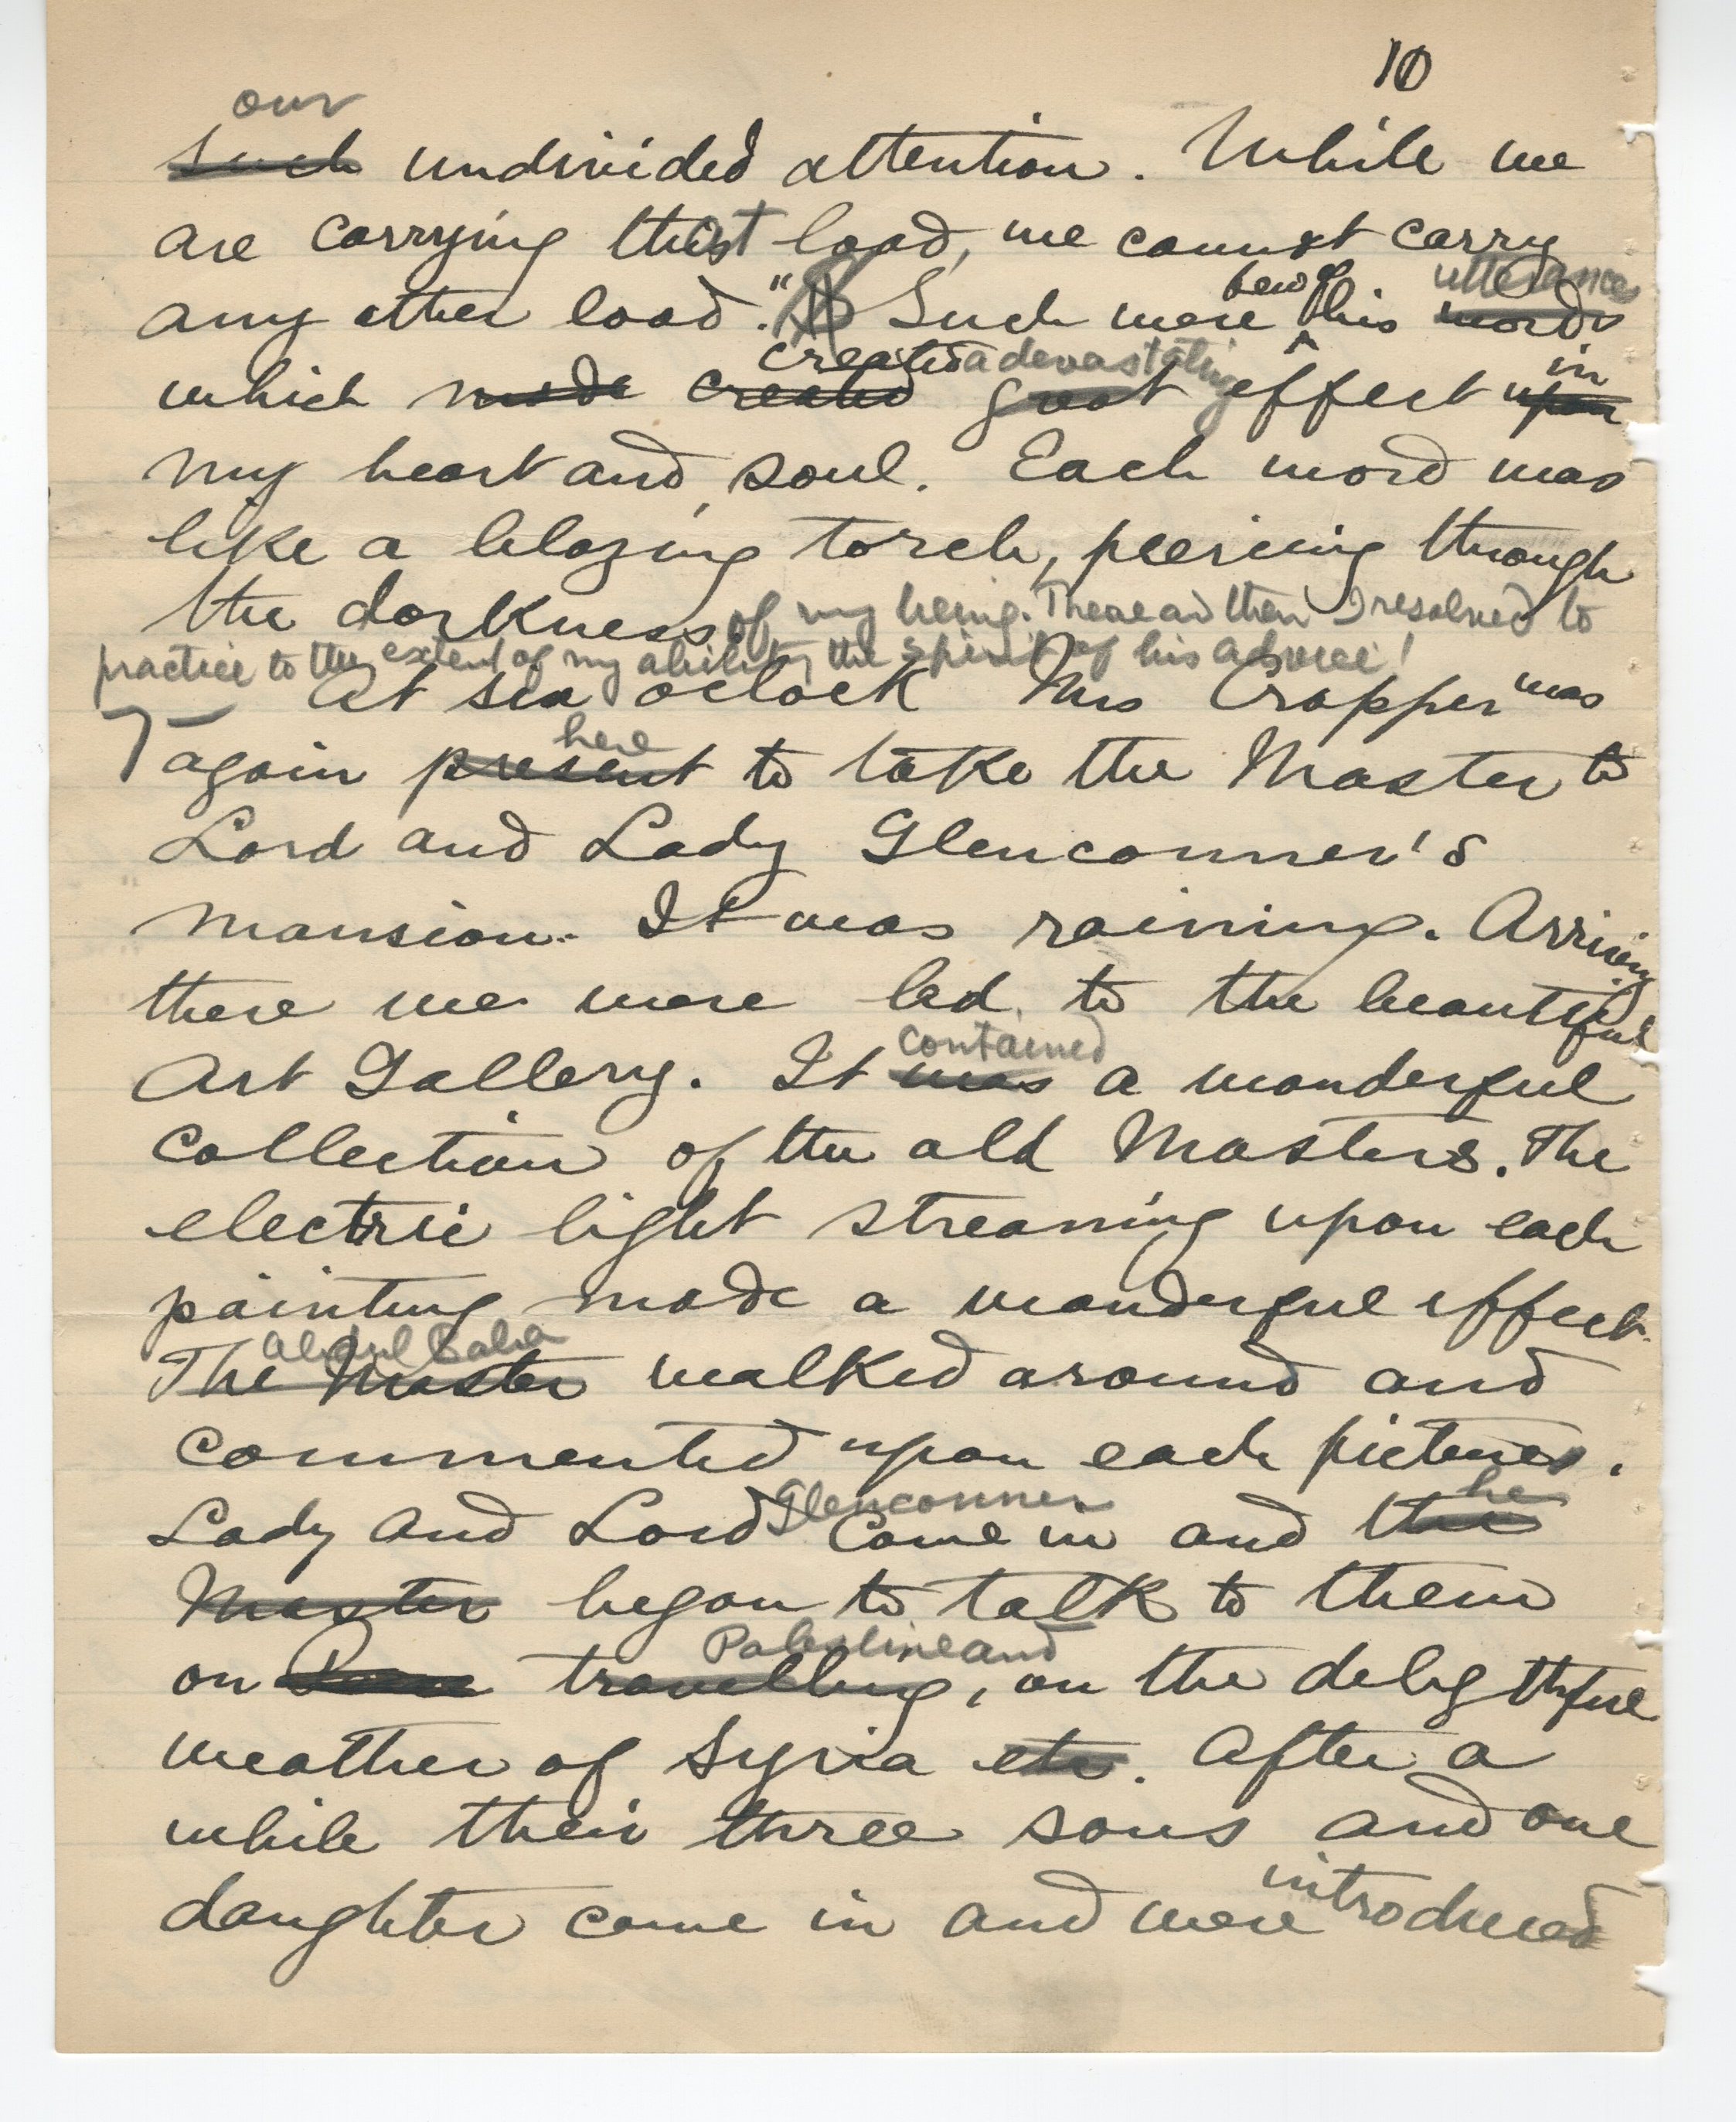 10
our
such undivided attention. While we
are carrying this load, we cannot carry
any other load." Such were few of his words utterances
which made created created a devastating great effect upon in
my heart and soul. Each word was
like a blazing torch, piercing through
the darkness of my being. There and then I resolved to
practice to the extent of my ability the spirit of his advice!
At six oclock Mrs Cropper was
again present here to take the Master to
Lord and Lady Glenconner's
mansion. It was raining. Arriving
there we were led to the beautiful
Art Gallery. It was contained a wonderful
collection of the old Masters. The
electric light streaming upon each
painting made a wonderful effect.
The Master Abdul Baha walked around and
commented upon each picture.
Lady and Lord Glenconner came in and the he
Master began to talk to them
on travelling, Palestine and on the delightful
weather of Syria etc. After a
while their three sons and one
daughter came in and were introduced